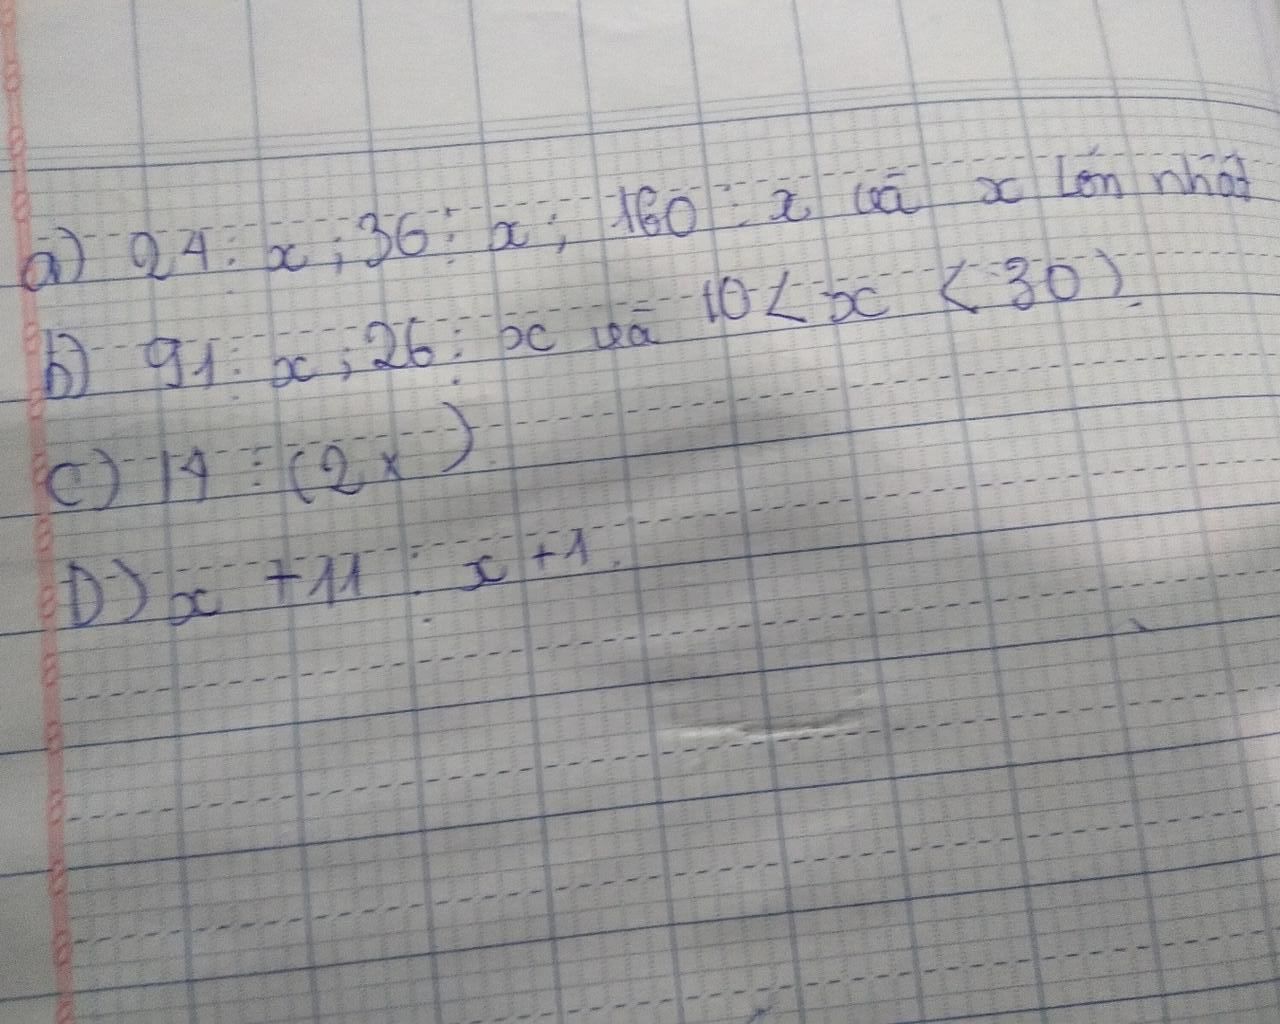 a) 24 ⋮ x ; 36 ⋮ x ; 160 ⋮ x và x lớn nhất
b) 91 ⋮ x ; 26 ⋮ x và 10 < x < 30)
c) 14 ⋮ (2x)
D) x + 11 ⋮ x + 1.